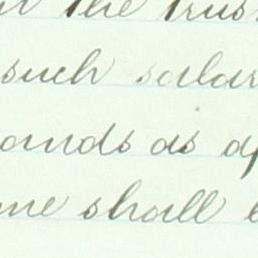 the trus
such salar
onds as a
me shall